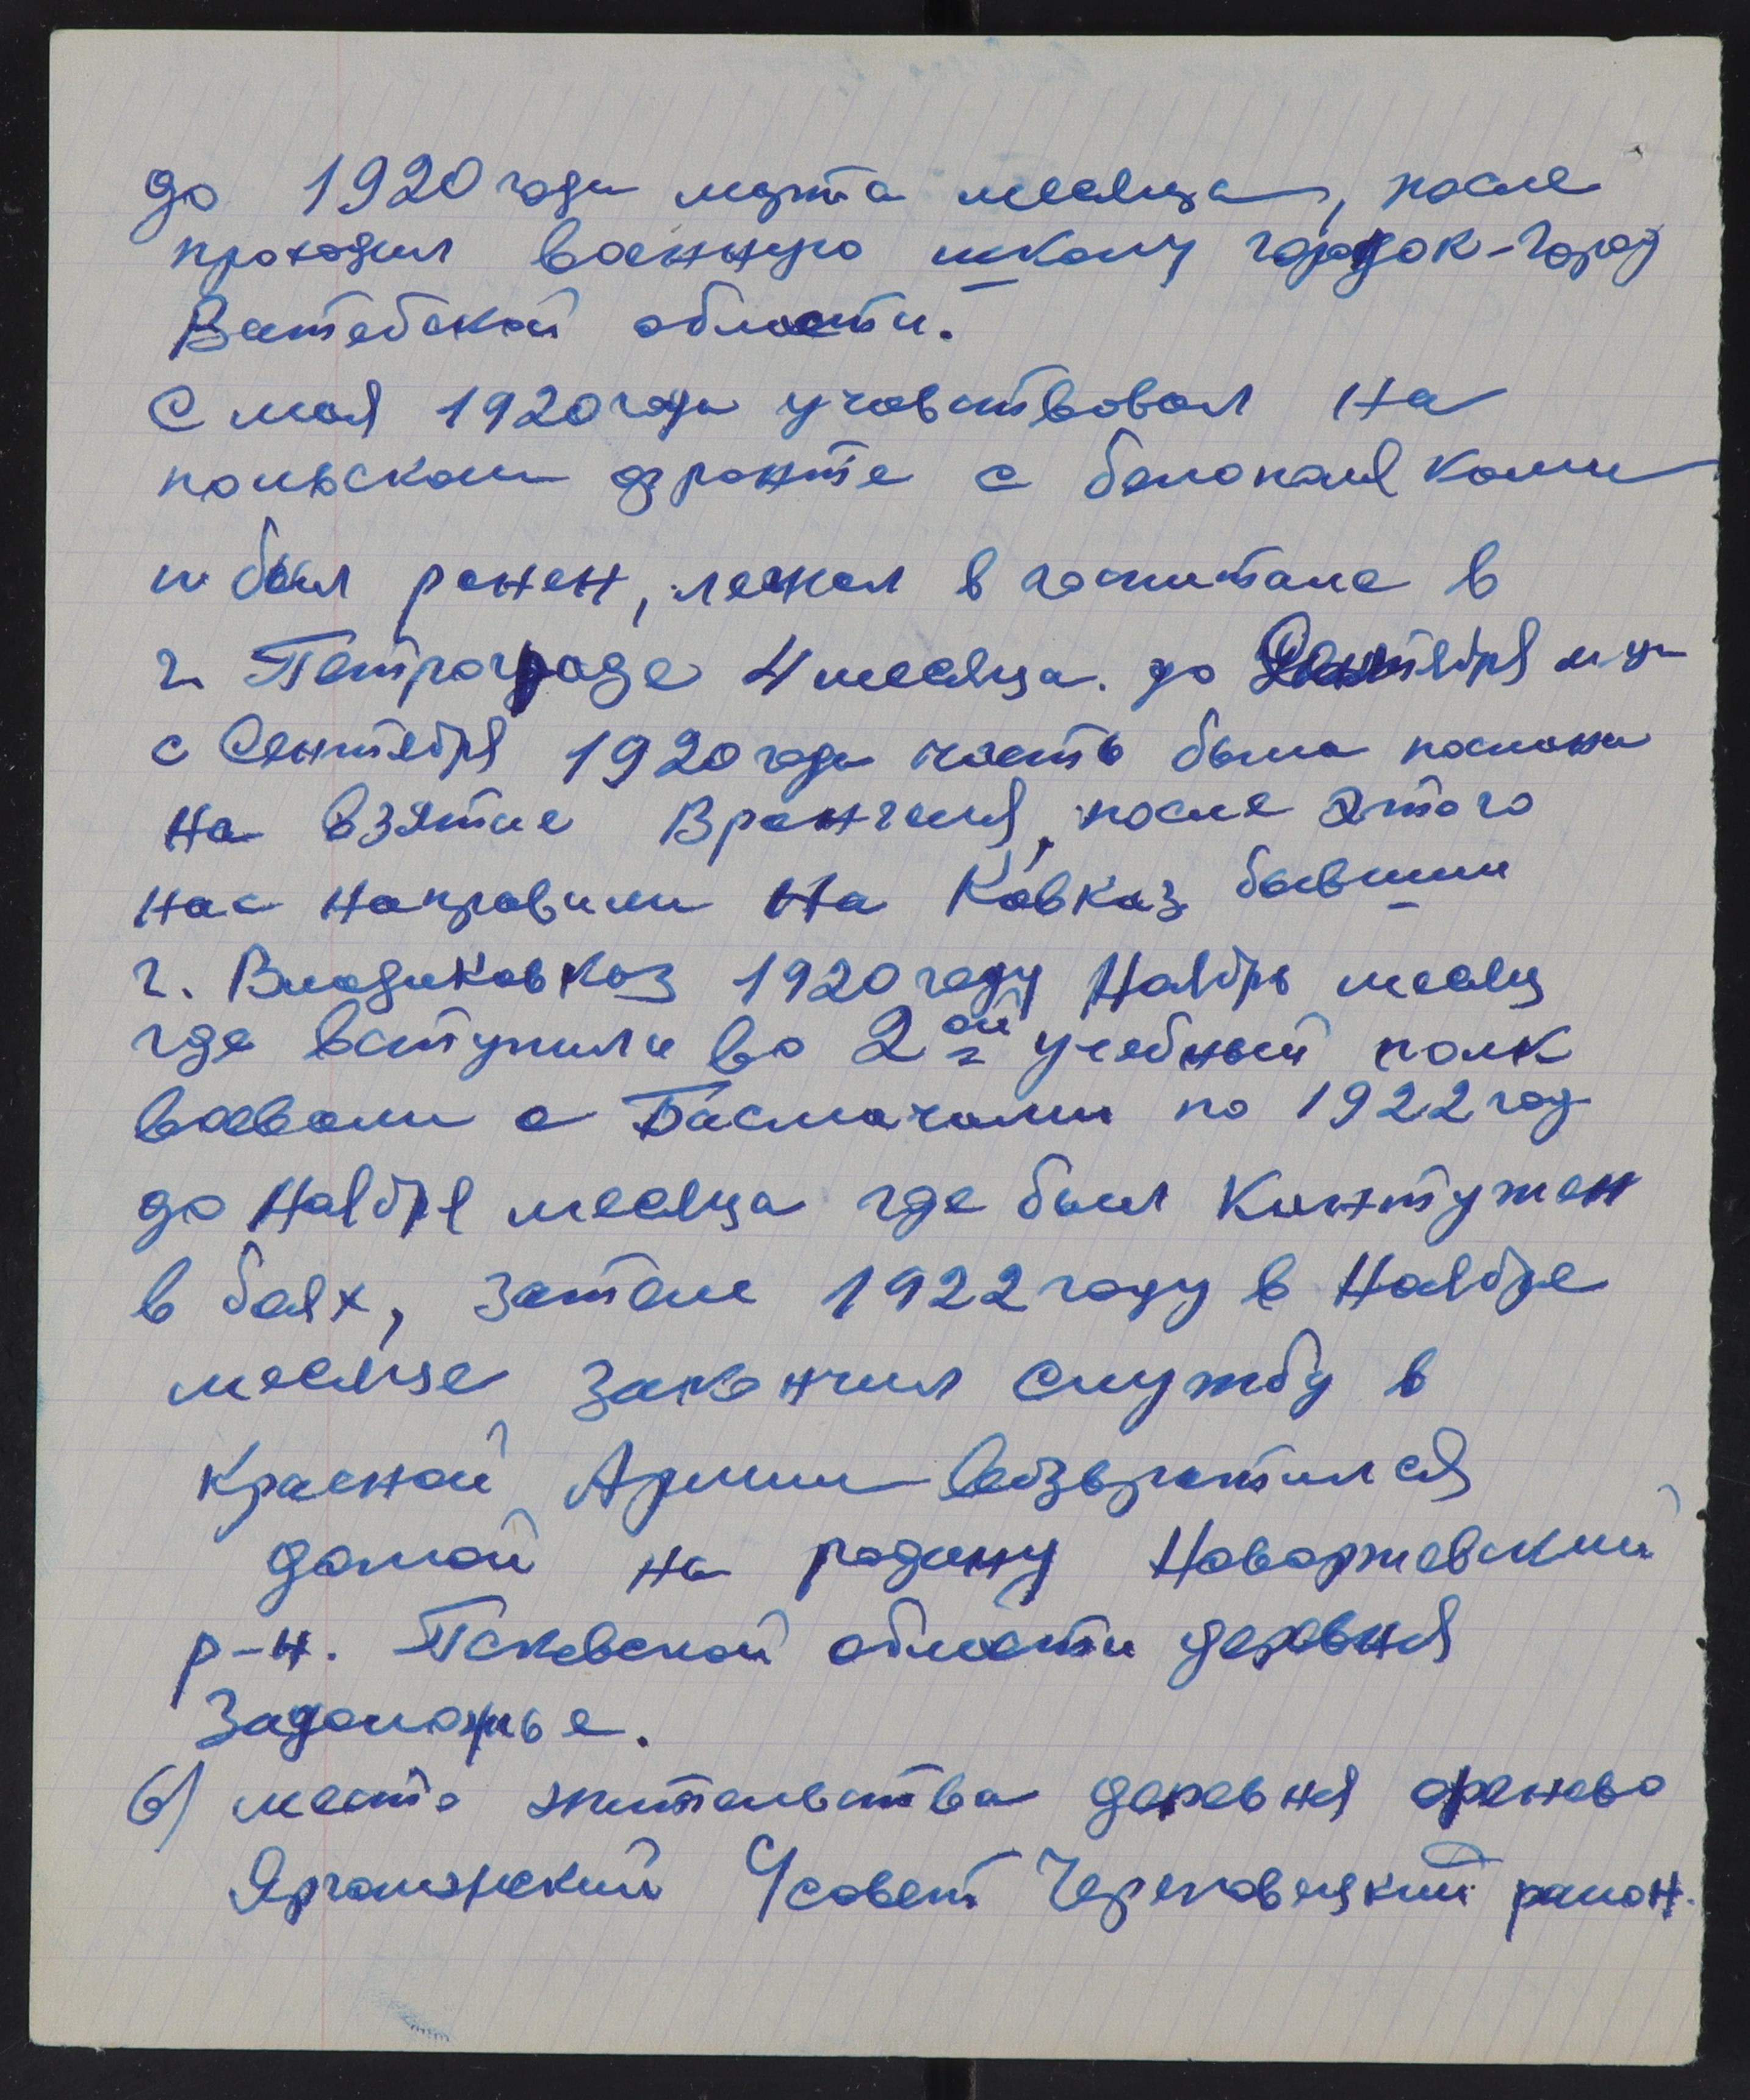 до 1920 года марта месяца, после
проходил военную школу городок-город
Ватебской области.
С мая 1920 года учавствовал на
польском фронте с белополяками
и был ранен, лежал в госпитале в
г. Петрограде 4 месяца. до Сентября м-ца
с Сентября 1920 года часть была послана
на взятие Врангеля, после этого
нас направили на Кавказ бывший
г. Владикавказ 1920 году Ноябрь месяц
где вступили во 2ой учебный полк
воевали с Басмачами по 1922 год
до Ноября месяца где был контужен
в боях, затем 1922 году в Ноябре
месяце закончил службу в
Красной Армии возвратился
домой на родину Новоржевский
р-н. Псковской области деревня
6) место жительства деревня
совет Череповецкий район.